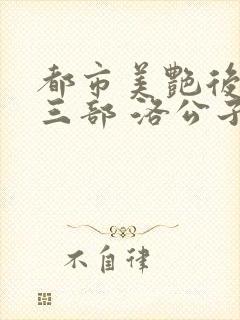 都市美艷後
三部 洛公子
不自律